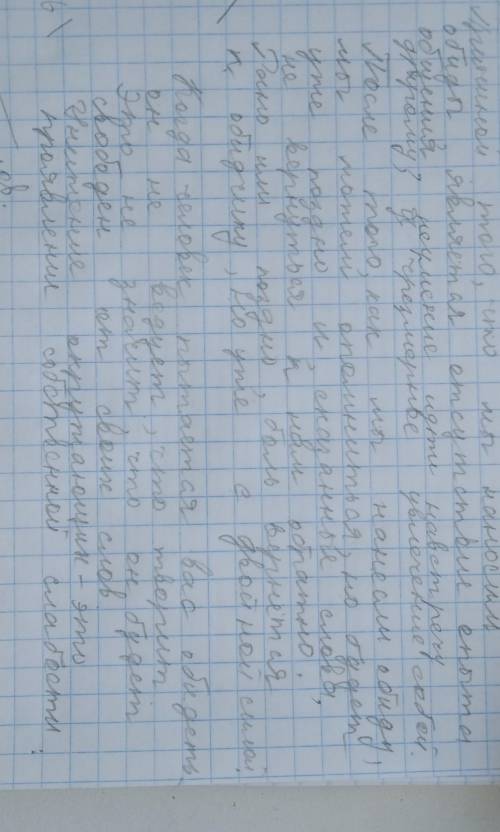 Причиной того, что мы наносим
обиды является отсутствие опыта
общения, неумение идти навстречу
другому, чрезмерное увлечение собой.
После того, как мы нанесли обиду,
мы можем опомниться, но будет
уже поздно и сказанные слова,
не вернуться к нам обратно.
Рано или поздно боль вернётся
к обидчику, но уже с двойной силой.
Когда человек пытается вас обидеть,
он не ведует, что творит.
Это не значит, что он будет
свободен от своих слов.
Унижение окружающих - это
проявление собственной слабости